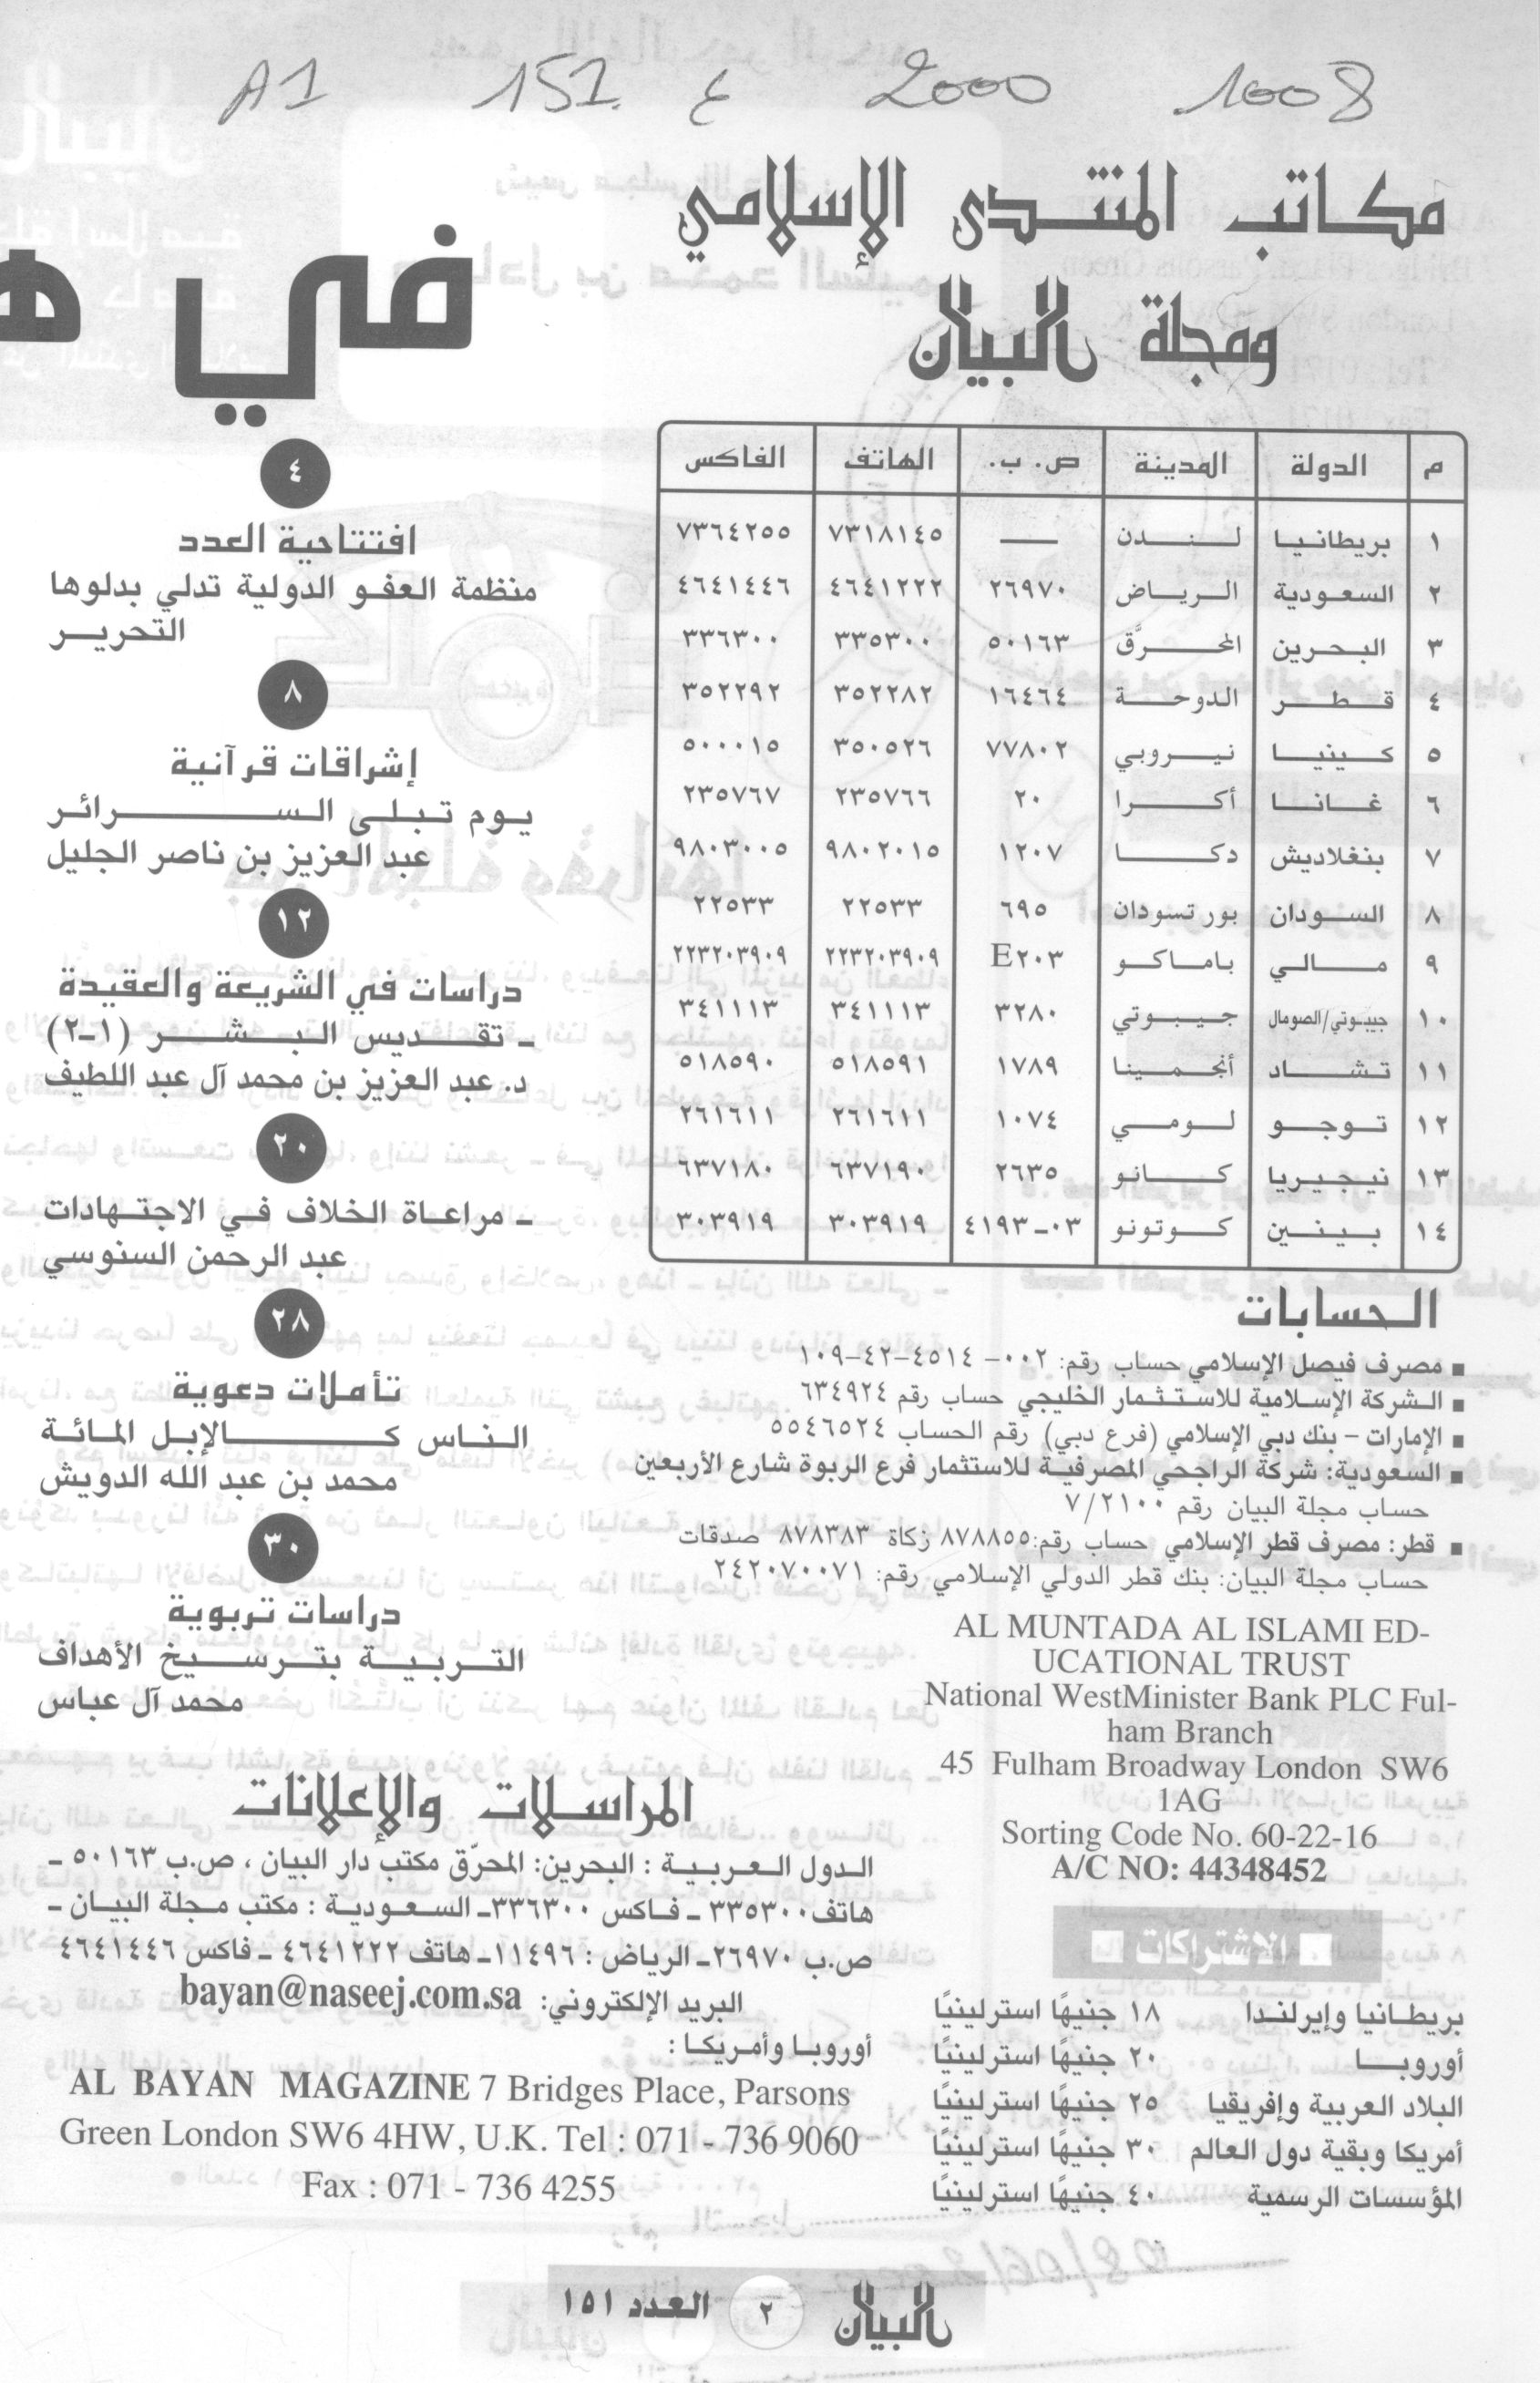 A1 151 ع 2000 1008
مكاتب المنتدى الإسلامي
ومجلة البيان
م الدولة المدينة ص. ب. الهاتف الفاكس
١ بريطانيا لندن — ٧٣١٨١٤٥ ٧٣٦٤٢٥٥
٢ السعودية الرياض ٢٦٩٧٠ ٤٦٤١٢٢٢ ٤٦٤١٤٤٦
٣ البحرين المحرَّق ٥٠١٦٣ ٣٣٥٣٠٠ ٣٣٦٣٠٠
٤ قطر الدوحة ١٦٤٦٤ ٣٥٢٢٨٢ ٣٥٢٢٩٢
٥ كينيا نيروبي ٧٧٨٠٢ ٣٥٠٥٢٦ ٥٠٠٠١٥
٦ غانا أكرا ٢٠ ٢٣٥٧٦٦ ٢٣٥٧٦٧
٧ بنغلاديش دكا ١٢٠٧ ٩٨٠٢٠١٥ ٩٨٠٣٠٠٥
٨ السودان بورتسودان ٦٩٥ ٢٢٥٣٣ ٢٢٥٣٣
٩ مالي باماكو E٢٠٣ ٢٢٣٢٠٣٩٠٩ ٢٢٣٢٠٣٩٠٩
١٠ جيبوتي/الصومال جيبوتي ٣٢٨٠ ٣٤١١١٣ ٣٤١١١٣
١١ تشاد أنجمينا ١٧٨٩ ٥١٨٥٩١ ٥١٨٥٩٠
١٢ توجو لومي ١٠٧٤ ٢٦١٦١١ ٢٦١٦١١
١٣ نيجيريا كانو ٢٦٣٥ ٦٣٧١٩٠ ٦٣٧١٨٠
١٤ بينين كوتونو ٠٣-٤١٩٣ ٣٠٣٩١٩ ٣٠٣٩١٩
الحسابات
■ مصرف فيصل الإسلامي حساب رقم: ٠٠٢-٤٥١٤-٤٢-١٠٩
■ الشركة الإسلامية للاستثمار الخليجي حساب رقم ٦٣٤٩٢٤
■ الإمارات - بنك دبي الإسلامي (فرع دبي) رقم الحساب ٥٥٤٦٥٢٤
■ السعودية: شركة الراجحي المصرفية للاستثمار فرع الربوة شارع الأربعين
حساب مجلة البيان رقم ٧/٢١٠٠
■ قطر: مصرف قطر الإسلامي حساب رقم:٨٧٨٨٥٥ زكاة ٨٧٨٣٨٣ صدقات
حساب مجلة البيان: بنك قطر الدولي الإسلامي رقم: ٢٤٢٠٧٠٠٧١
AL MUNTADA AL ISLAMI ED-
UCATIONAL TRUST
National WestMinister Bank PLC Ful-
ham Branch
45 Fulham Broadway London SW6
1AG
Sorting Code No. 60-22-16
A/C NO: 44348452
■ الاشتراكات ■
بريطانيا وإيرلندا ١٨ جنيهًا استرلينيًا
أوروبا ٢٠ جنيهًا استرلينيًا
البلاد العربية وإفريقيا ٢٥ جنيهًا استرلينيًا
أمريكا وبقية دول العالم ٣٠ جنيهًا استرلينيًا
المؤسسات الرسمية ٤٠ جنيهًا استرلينيًا
في ه
٤
افتتاحية العدد
منظمة العفو الدولية تدلي بدلوها
التحرير
٨
إشراقات قرآنية
يوم تبلى السرائر
عبد العزيز بن ناصر الجليل
١٢
دراسات في الشريعة والعقيدة
ـ تقديس البشر (١-٢)
د. عبد العزيز بن محمد آل عبد اللطيف
٢٠
ـ مراعاة الخلاف في الاجتهادات
عبد الرحمن السنوسي
٢٨
تأملات دعوية
الناس كالإبل المائة
محمد بن عبد الله الدويش
٣٠
دراسات تربوية
التربية بترسيخ الأهداف
محمد آل عباس
المراسلات والإعلانات
الدول العربية : البحرين: المحرّق مكتب دار البيان ، ص.ب ٥٠١٦٣ ـ
هاتف ٣٣٥٣٠٠ ـ فاكس ٣٣٦٣٠٠ـ السعودية : مكتب مجلة البيان ـ
ص.ب ٢٦٩٧٠ـ الرياض : ١١٤٩٦ـ هاتف ٤٦٤١٢٢٢ ـ فاكس ٤٦٤١٤٤٦
البريد الإلكتروني: bayan@naseej.com.sa
أوروبا وأمريكا :
AL BAYAN MAGAZINE 7 Bridges Place, Parsons
Green London SW6 4HW, U.K. Tel : 071 - 736 9060
Fax : 071 - 736 4255
البيان ٢ العدد ١٥١